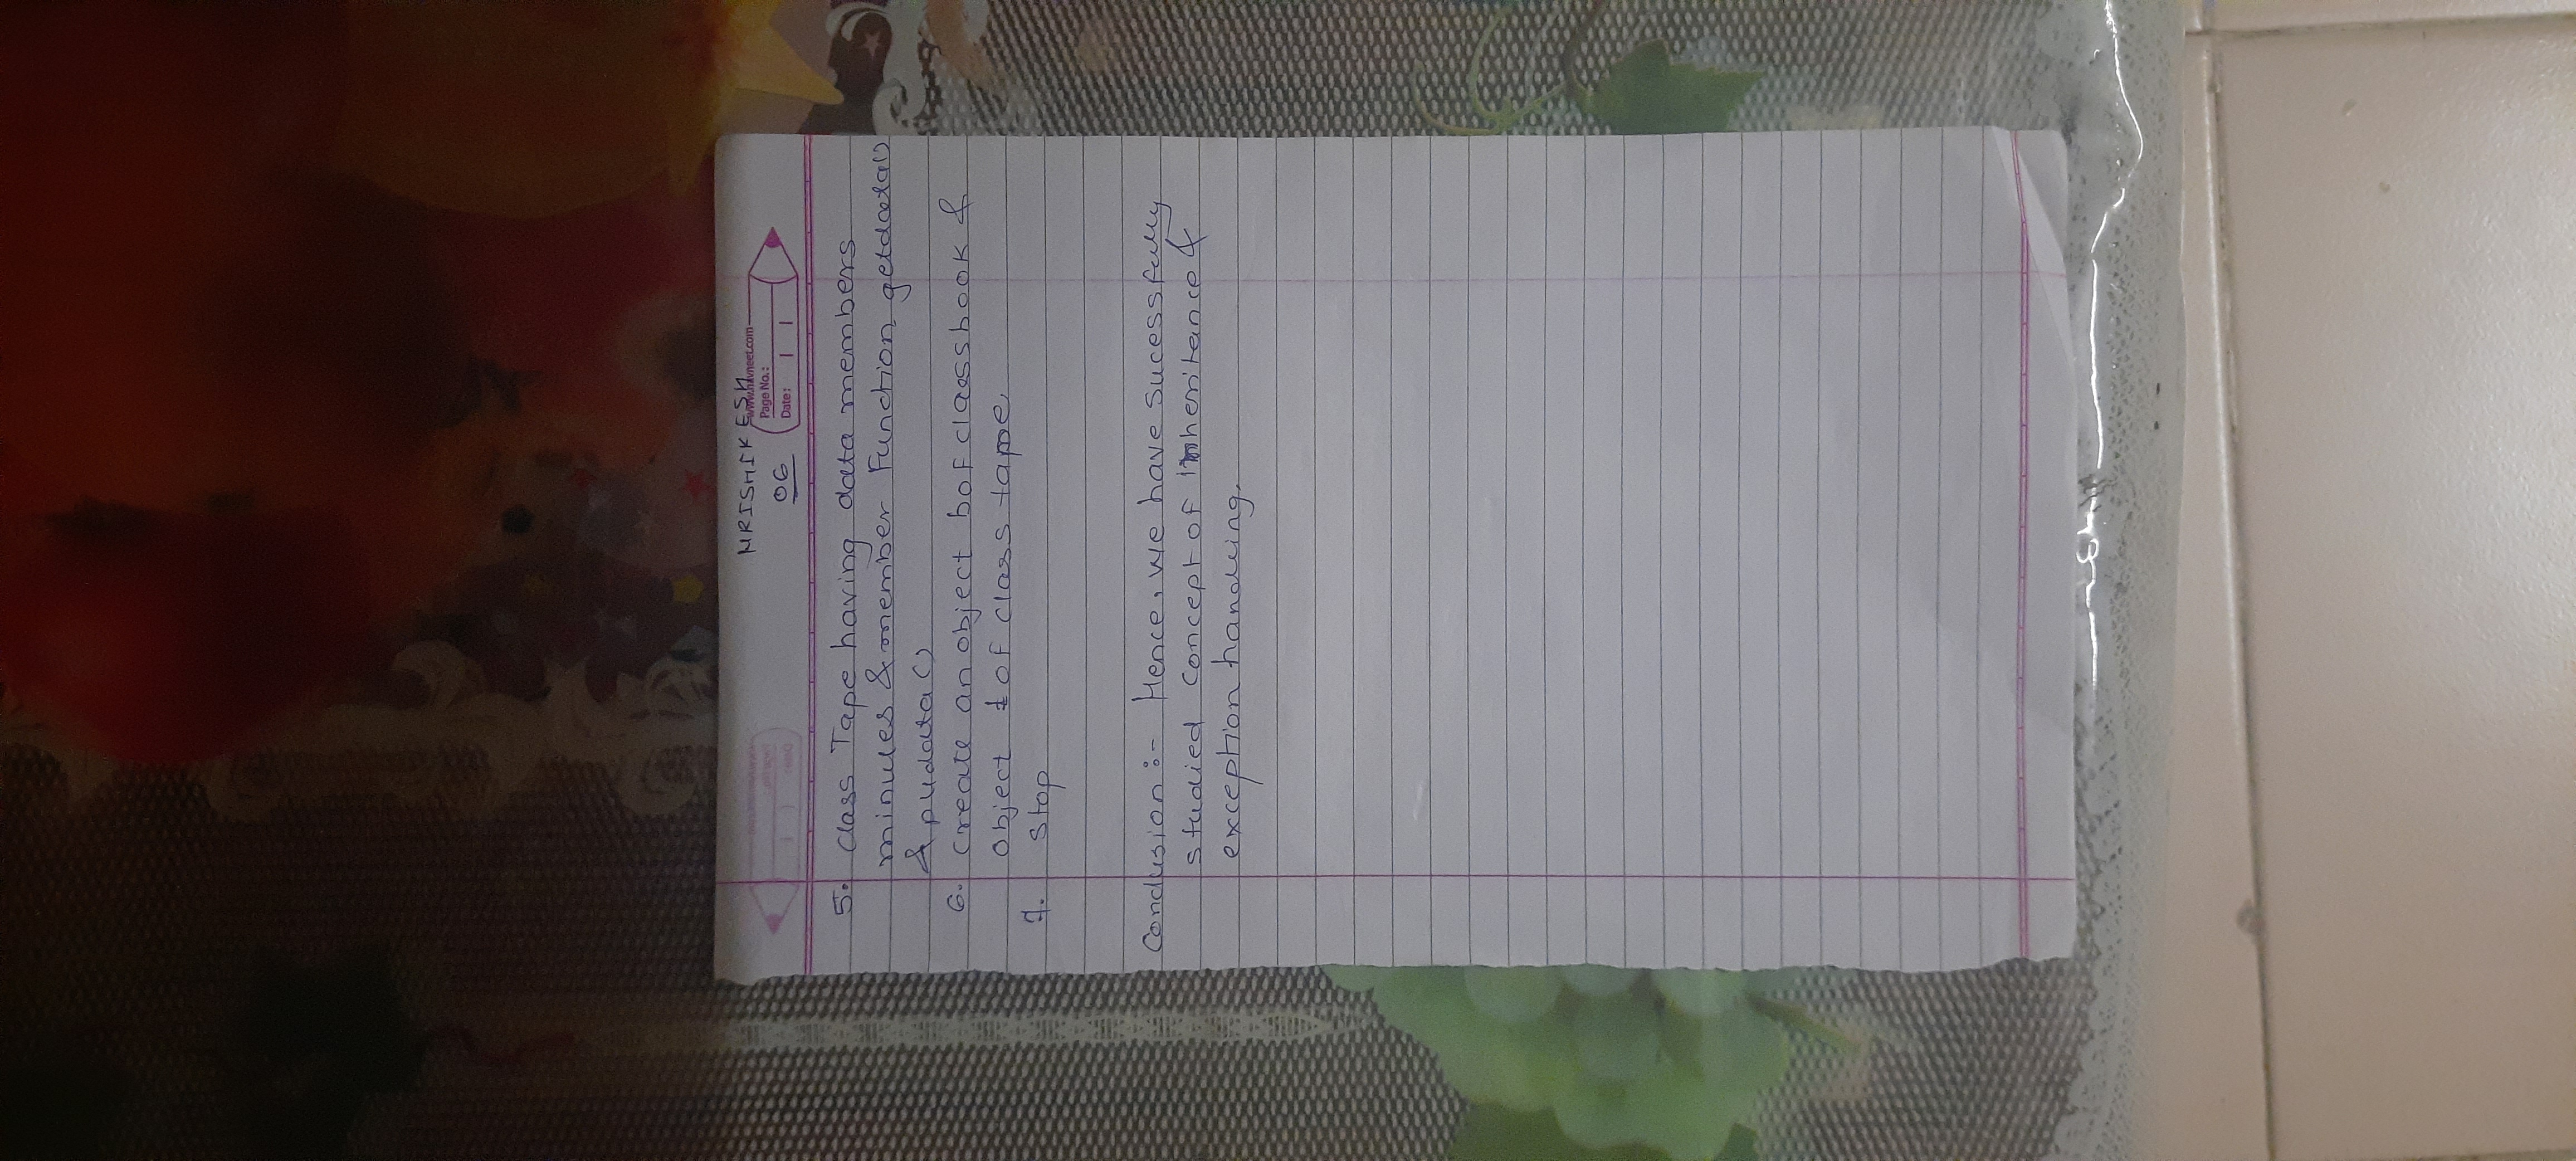 HRISHIKESH
www.navneet.com
06
Page No.:
Date:
5. class Tape having data members
minutes & member Function getdata()
& pudata()
6. create an object b of class book &
object t of class tape.
7. Stop
Conclusion :- Hence, we have sucessfully
studied concept of Inheritance &
exception handling.